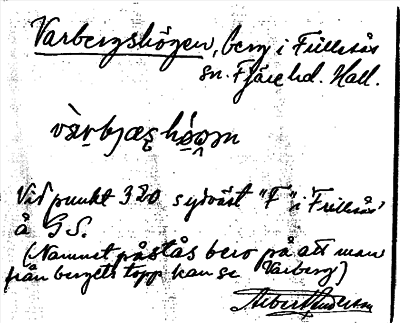 Varbergshögen, berg i Frillesås
sn. Fjäre hd. Hall.
vàrbjæshö́gən
Vid punkt 320 sydväst "F" i Frillesås
å G.S.
(Namnet påstås bero på att man
från bergets topp kan se Varberg)